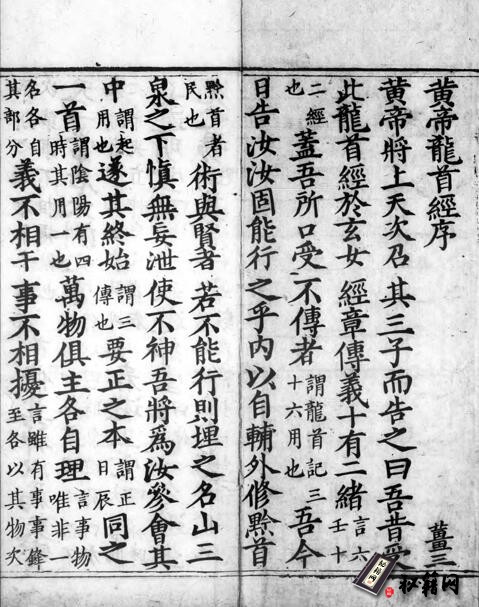 黄帝龍首經序 薑三
黄帝將上天次召其三子而告之曰吾昔受
此龍首經於玄女經章傳義十有二緒言六壬十
二經也蓋吾所口受不傳者謂龍首記三十六用也吾今
日告汝汝固能行之乎内以自輔外修黔首
黔首者民也術與賢者若不能行則埋之名山三
泉之下慎無妄泄使不神吾將爲汝參會其
中謂起用也遂其終始謂三傳也要正之本謂正日辰同之
一首謂陰陽有四時其用一也萬物俱主各自理言事物唯非一
名各自其部分義不相干事不相擾言雖有事事鋒至各以其物次
秘籍网